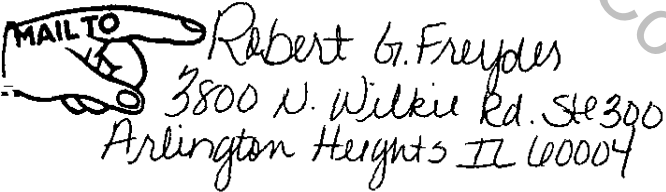 MAIL TO
Robert G. Freydes
3800 N. Wilkie Rd. Ste 300
Arlington Heights IL 60004